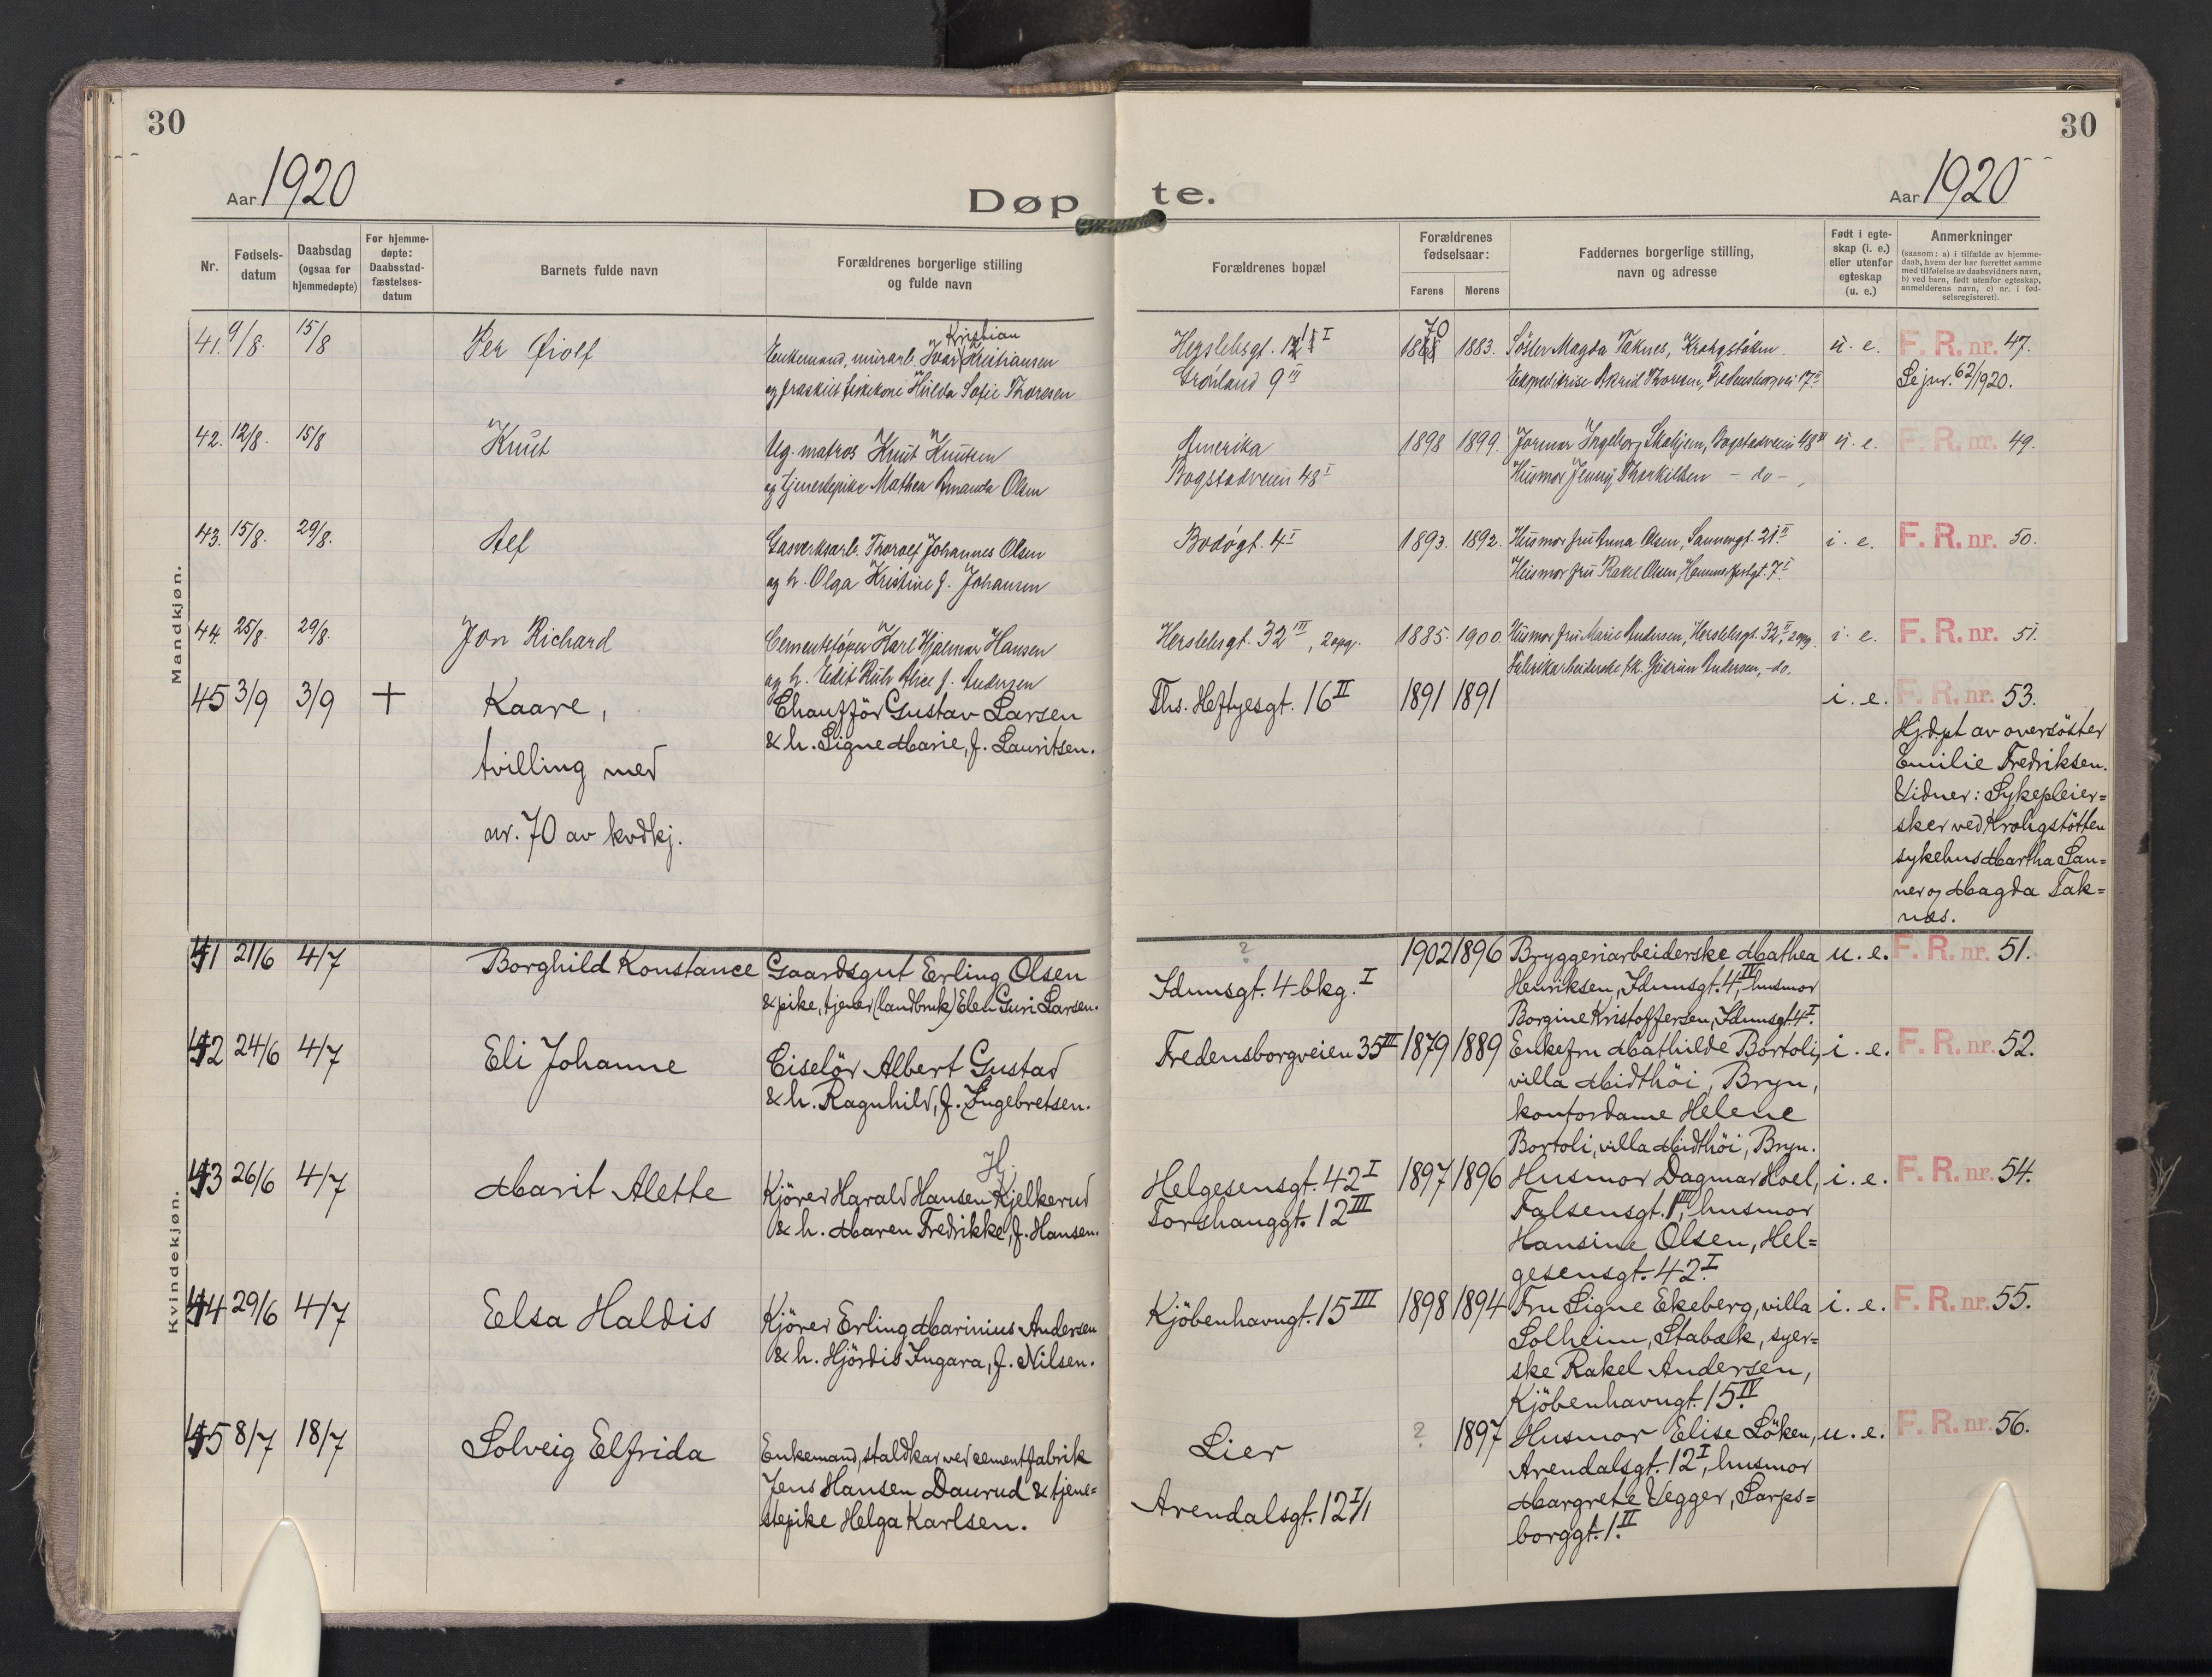 30
30
Aar 1920
Døpte.
Aar 1920
Nr.
Fødsels-
datum
Daabsdag
(ogsaa for
hjemmedøpte)
For hjemme-
døpte:
Daabsstad-
fæstelses-
datum
Barnets fulde navn
Forældrenes borgerlige stilling
og fulde navn
Forældrenes bopæl
Forældrenes
fødselsaar:
Farens
Morens
Faddernes borgerlige stilling,
navn og adresse
Født i egte-
skap (i. e.)
eller utenfor
egteskap
(u. e.)
Anmerkninger
(saasom: a) i tilfælde av hjemme-
daab, hvem der har forrettet samme
med tilføielse av daabsvidners navn,
b) ved barn, født utenfor egteskap,
anmelderens navn, c) nr. i fød-
selsregisteret).
Mandkjøn.
41. 9/8. 15/8 Per Øiolf
Kristian
Enkemand, murarb. Ivar Kristiansen
og fraskilt fiskekone Hulda Sofie Thoresen
Herslebsgt. I
Grønland 9 III
70
1883.
Søster Magda Taknes, Krohgstøtten.
Ekspeditrise Astrid Thoresen, Fredensborgvei 17 II
u. e.
F. R. nr. 47.
Se jnr. 62/1920.
42. 12/8. 15/8 Knut
Ug. matros Knut Knutsen
og tjenestepike Mathea Amanda Olsen
Amerika
Bogstadveien 48 I
1898 1899.
Jormor Ingeborg Skahjem, Bogstadveien 48 II
Husmor Jenny Thorkildsen - do -
u. e.
F. R. nr. 49.
43. 15/8. 29/8. Alf
Gasverksarb. Thoralf Johannes Olsen
og h. Olga Kristine f. Johansen
Bodøgt. 4 I
1893. 1892.
Husmor fru Anna Olsen, Sannergt. 21 II
Husmor fru Rakel Olsen, Hammerfestgt. 7 I
i. e.
F. R. nr. 50.
44. 25/8. 29/8. Jon Richard
Cementstøper Karl Hjalmar Hansen
og h. Edit Ruth Alice f. Andersen
Herslebsgt. 32 III, 2 opg.
1885. 1900
Husmor fru Marie Andersen, Herslebsgt. 32 II, 2 opg.
Fabrikarbeiderske frk. Gudrun Andersen, -do.
i. e.
F. R. nr. 51.
45 3/9 3/9 + Kaare,
tvilling med
nr. 70 av kvdkj.
Chaufför Gustav Larsen
& h. Signe Marie, f. Lauritsen.
Ths. Heftyesgt. 16 II
1891 1891
i. e.
F. R. nr. 53.
Hjdpt av oversöster
Emilie Fredriksen.
Vidner: Sykepleier=
sker ved Krohgstötten
sykehus Martha San=
ner og Magda Tak=
næs.
Kvindekjøn.
41 21/6 4/7 Borghild Konstance
Gaardsgut Erling Olsen
& pike, tjener (landbruk) Elen Guri Larsen.
?
Idunsgt. 4 bkg. I
1902 1896
Bryggeriarbeiderske Mathea
Henriksen, Idunsgt. 4 IV, husmor
Borgine Kristoffersen, Idunsgt. 4 I.
u. e.
F. R. nr. 51.
42 24/6 4/7 Eli Johanne
Ciselör Albert Gustad
& h. Ragnhild, f. Ingebretsen.
Fredensborgveien 35 III
1879 1889
Enkefru Mathilde Bortoli,
villa Midthöi, Bryn,
kontordame Helene
Bortoli, villa Midthöi, Bryn.
i. e.
F. R. nr. 52.
43 26/6 4/7 Marit Alette
Hj.
Kjörer Harald Hansen Kjelkerud
& h. Maren Fredrikke, f. Hansen.
Helgesensgt. 42 I
Torshauggt. 12 III
1897 1896
Husmor Dagmar Hoel,
Falsensgt. 1 III, husmor
Hansine Olsen, Hel=
gesensgt. 42 I.
i. e.
F. R. nr. 54.
44 29/6 4/7 Elsa Haldis
Kjörer Erling Marinius Andersen
& h. Hjördis Ingara, f. Nilsen.
Kjöbenhavngt. 15 III
1898 1894
Fru Signe Ekeberg, villa
Solheim, Stabæk, syer=
ske Rakel Andersen,
Kjöbenhavngt. 15 IV.
i. e.
F. R. nr. 55.
45 8/7 18/7 Solveig Elfrida
Enkemand, staldkar ved cementfabrik
Jens Hansen Daurud & tjene=
stepike Helga Karlsen.
Lier
Arendalsgt. 12 I/1
? 1897
Husmor Elise Löken,
Arendalsgt. 12 I, husmor
Margrete Vegger, Sarps=
borggt. 1 II.
u. e.
F. R. nr. 56.